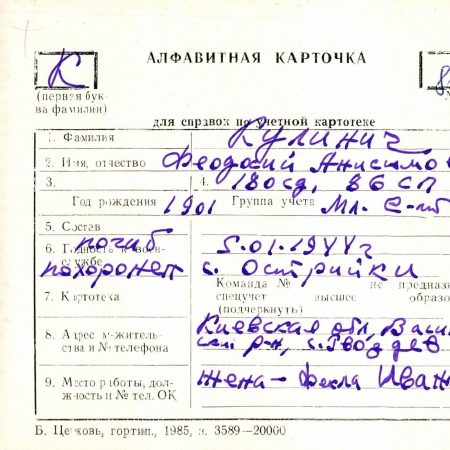 АЛФАВИТНАЯ КАРТОЧКА
К
(первая бук-
ва фамилии)
для справок по учетной картотеке
1. Фамилия Кулинич
2. Имя, отчество Феодосий Анисимо
3. 4. 180 сд, 86 СП
Год рождения 1901 Группа учета Мл. с-т
5. Состав
погиб 5.01.1944 г
6. Годность к воен-
службе
похоронен с. Острийки
Команда № не предназ
7. Картотека спецучет высшее образо
(подчеркнуть)
8. Адрес м-житель-
ства и № телефона
Киевская обл, Васи
ский р-н, с. Гвоздев
9. Место работы, дол-
жность и № тел. ОК
жена - Фекла Иван
Б. Церковь, гортип., 1985, з. 3589—20000